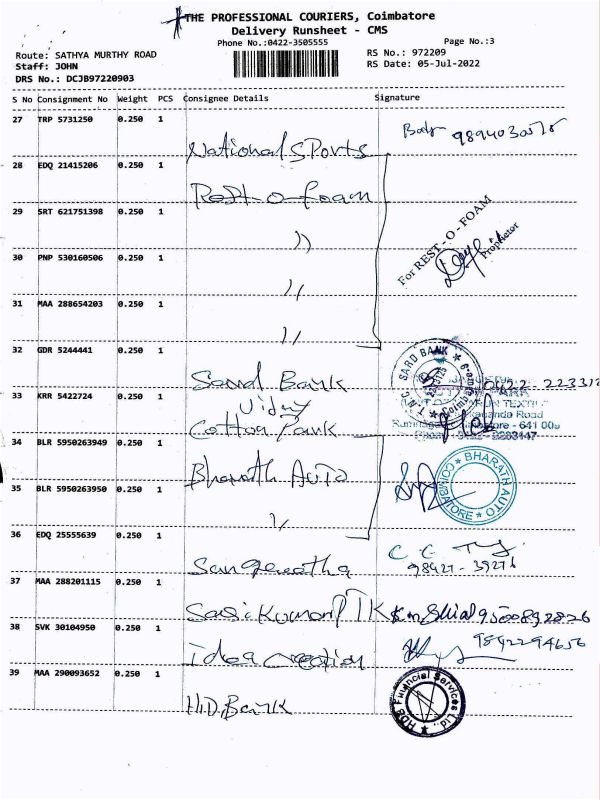 THE PROFESSIONAL COURIERS, Coimbatore
Delivery Runsheet - CMS
Phone No.:0422-3505555
Page No.:3
Route: SATHYA MURTHY ROAD
RS No.: 972209
Staff: JOHN
RS Date: 05-Jul-2022
DRS No.: DCJB97220903
S No Consignment No Weight PCS Consignee Details Signature
27 TRP 5731250 0.250 1
National Sports
28 EDQ 21415206 0.250 1
Rest-o-foam
29 SRT 621751398 0.250 1
))
For REST-O-FOAM
Proprietor
30 PNP 530160506 0.250 1
))
31 MAA 288654203 0.250 1
))
32 GDR 5244441 0.250 1
SARD BANK
Bank
33 KRR 5422724 0.250 1
Cotton Park
Road
641 00
34 BLR 5950263949 0.250 1
Bharath Auto
BHARATH AUTO
COIMBATORE
35 BLR 5950263950 0.250 1
36 EDQ 25555639 0.250 1
Sangeetha
37 MAA 288201115 0.250 1
Sasi Kumar PTK
9500892826
38 SVK 30104950 0.250 1
idea creation
9842294656
39 MAA 290093652 0.250 1
H.D. Bank
HDB Financial Services Ltd